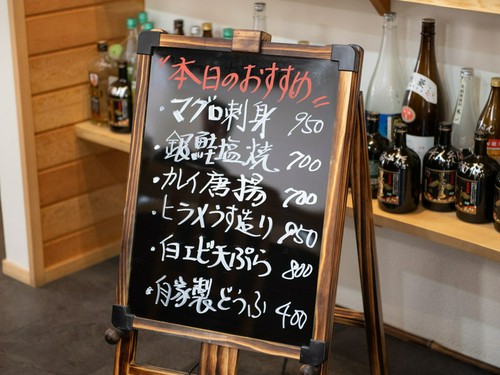 "本日のおすすめ"
・マグロ刺身 950
・銀鮭塩焼 700
・カレイ唐揚 700
・ヒラメうす造り 950
・白エビ天ぷら 800
・自家製どうふ 400